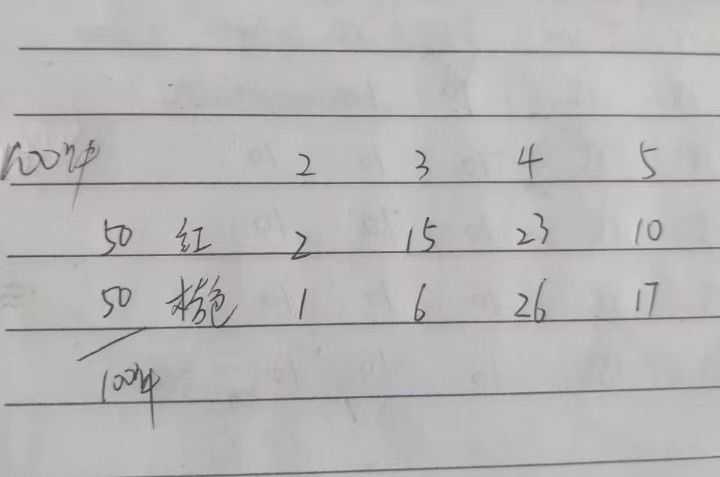 100件 2 3 4 5
50 红 2 15 23 10
50 桔色 1 6 26 17
100件